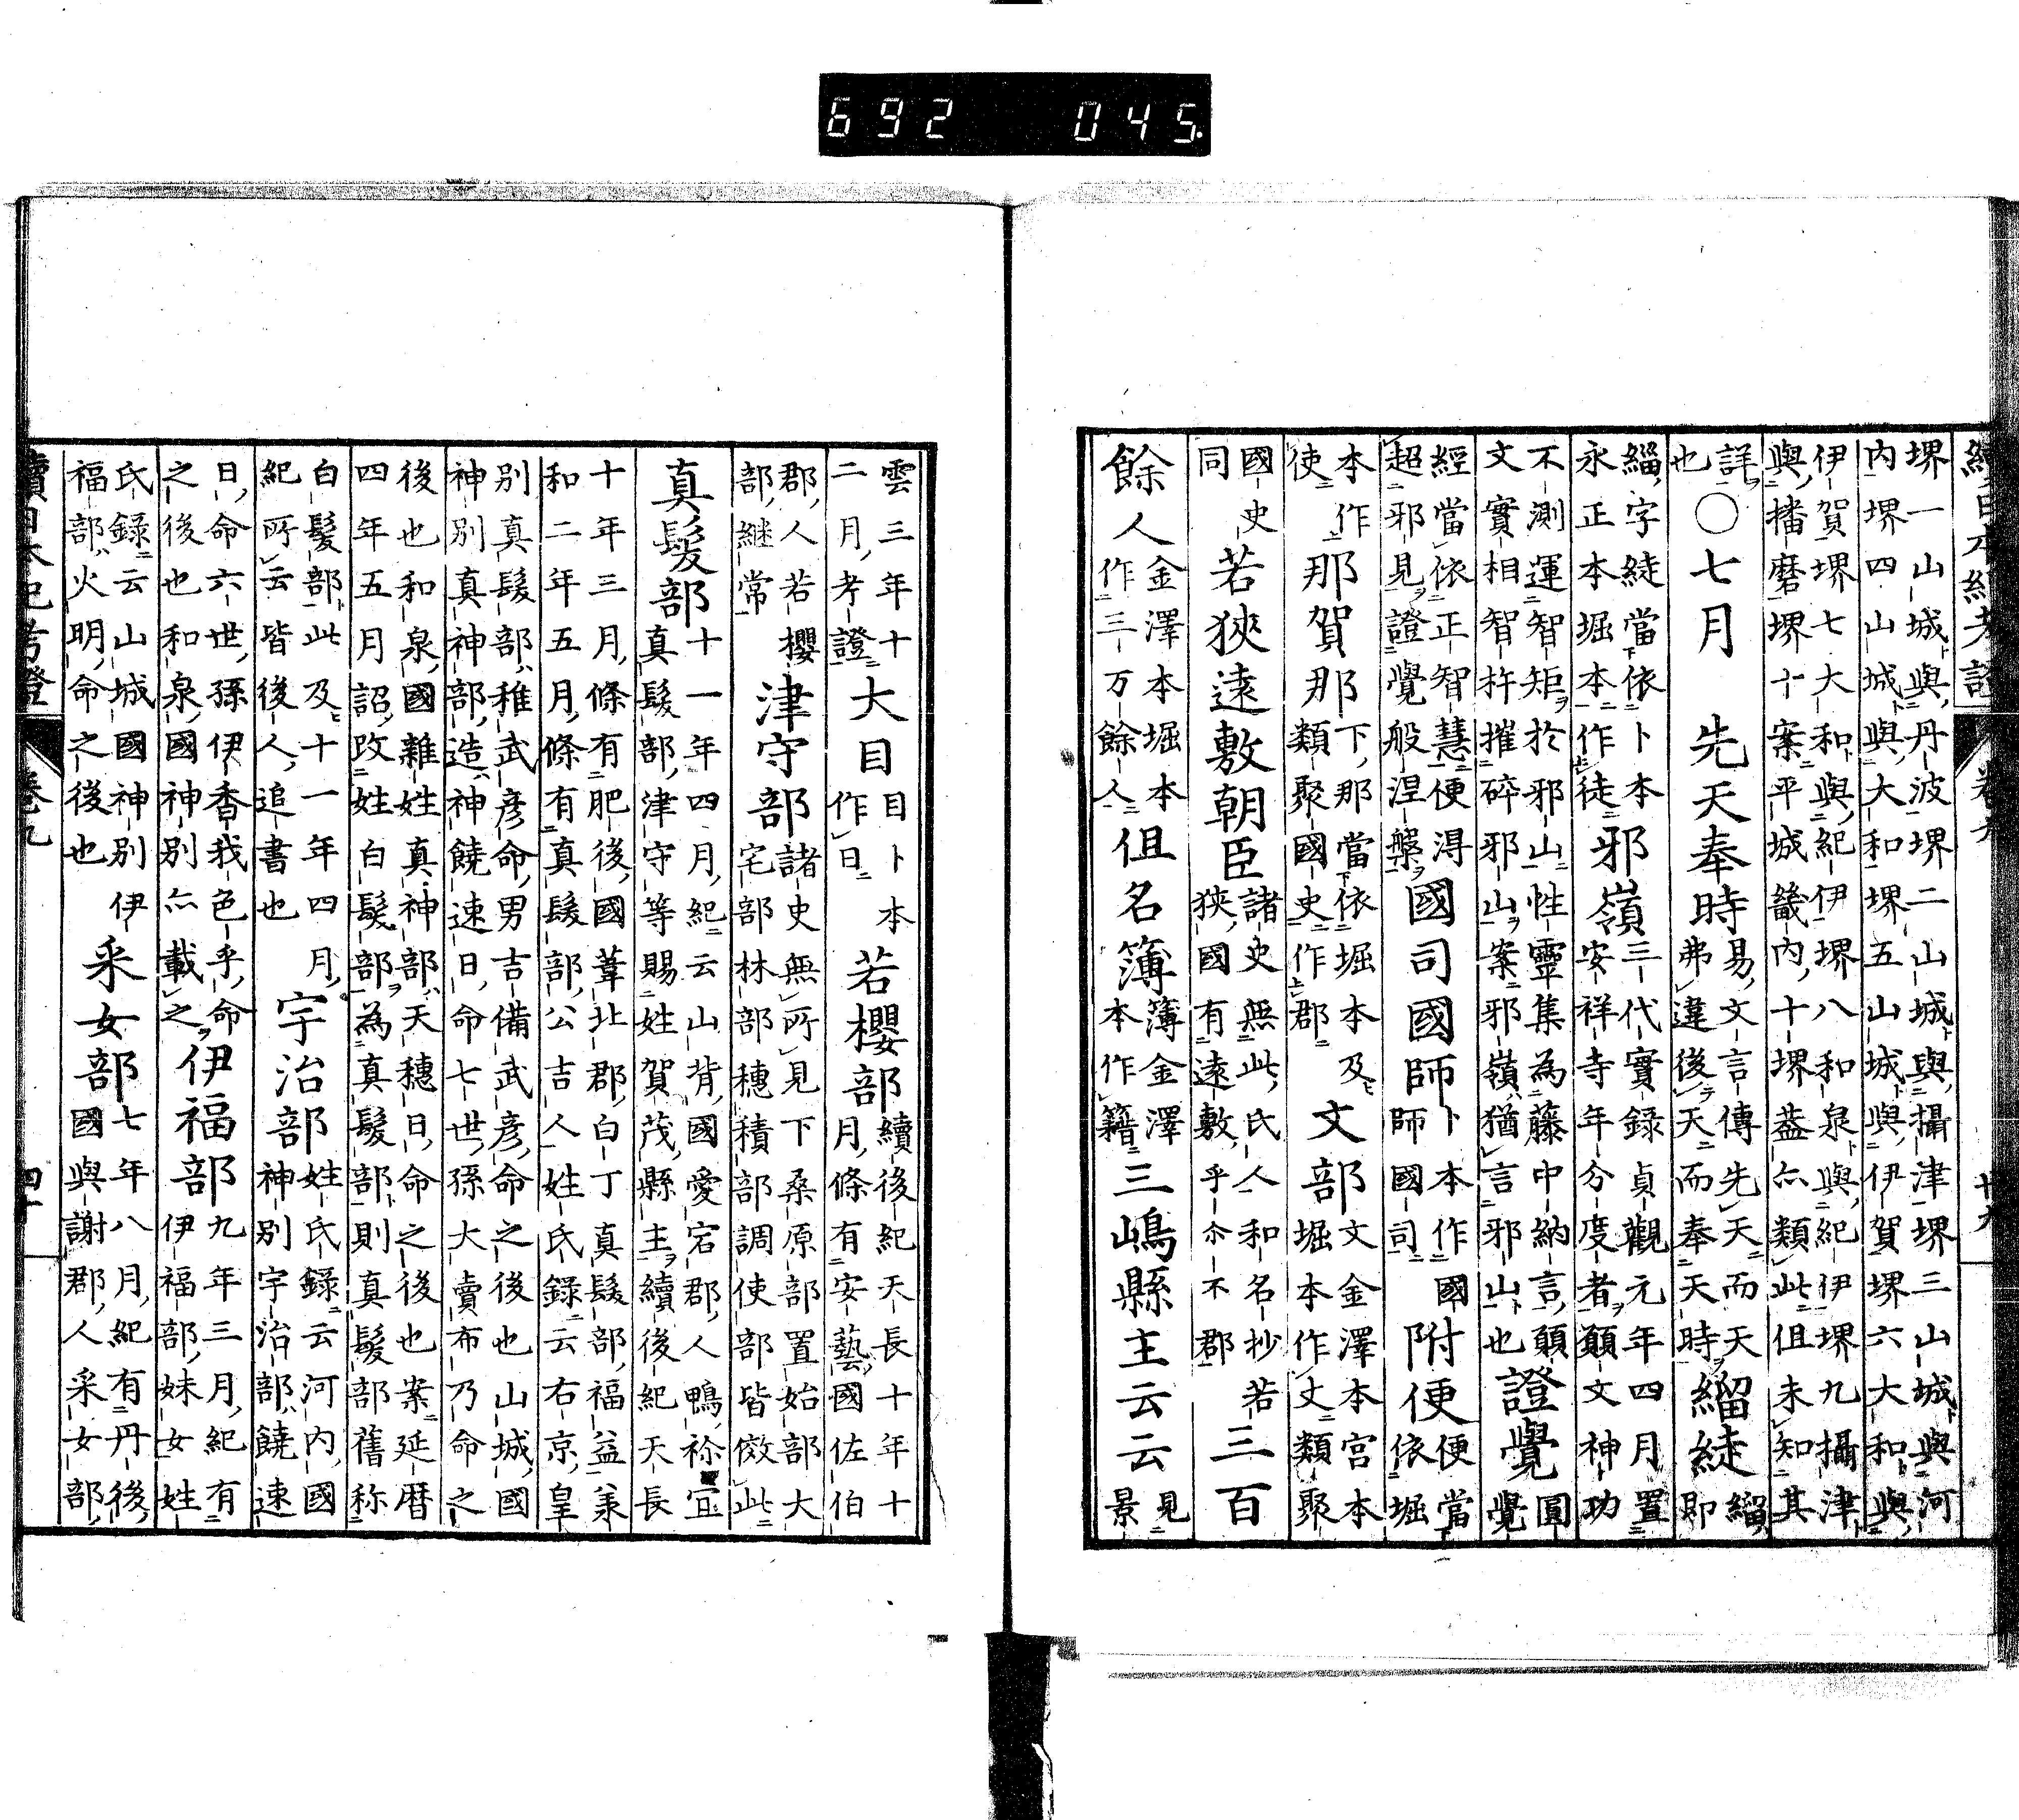 692 045
堺一山城與丹波堺二山城與攝津堺三山城與河
内堺四山城與大和堺五山城與伊賀堺六大和與
伊賀堺七大和與紀伊堺八和泉與紀伊堺九攝津
與播磨堺十案平城畿内十堺蓋亦類此但未知其
詳
也○七月 先天奉時易文言傳先天而天弗違後天而奉天時緇綕緇即
緇字綕當依卜本永正本堀本作徒邪嶺三代實錄貞觀元年四月置安祥寺年分度者願文神功
不測運智矩於邪山性靈集為藤中納言願文實相智杵摧碎邪山案邪嶺猶言邪山也證覺圓覺
經當依正智慧便得超邪見證覺般涅槃國司國師卜本作國師國司附便便當依堀
本作使那賀那下那當依堀本及類聚國史作郡文部文金澤本宮本堀本作丈類聚
國史同若狹遠敷朝臣諸史無此氏人和名抄若狹國有遠敷乎不郡三百
餘人金澤本堀本作三万餘人但名簿簿金澤本作籍三嶋縣主云云見景
雲三年十二月考證大目目卜本作日若櫻部續後紀天長十年十月條有安藝國佐伯
郡人若櫻部継常津守部諸史無所見下桑原部置始部大宅部林部穗積部調使部皆倣此
真髮部十一年四月紀云山背國愛宕郡人鴨禰宜真髮部津守等賜姓賀茂縣主續後紀天長
十年三月條有肥後國葦北郡白丁真髮部福益承和二年五月條有真髮部公吉人姓氏錄云右京皇
別真髮部稚武彦命男吉備武彦命之後也山城國神別真神部造神饒速日命七世孫大賣布乃命之
後也和泉國雜姓真神部天穗日命之後也案延暦四年五月詔改姓白髮部為真髮部則真髮部舊称
白髮部此及十一年四月紀所云皆後人追書也宇治部姓氏錄云河内國神別宇治部饒速
日命六世孫伊香我色乎命之後也和泉國神別亦載之伊福部九年三月紀有伊福部妹女姓
氏錄云山城國神別伊福部火明命之後也采女部七年八月紀有丹後國與謝郡人采女部
續日本紀考證 卷九 四十